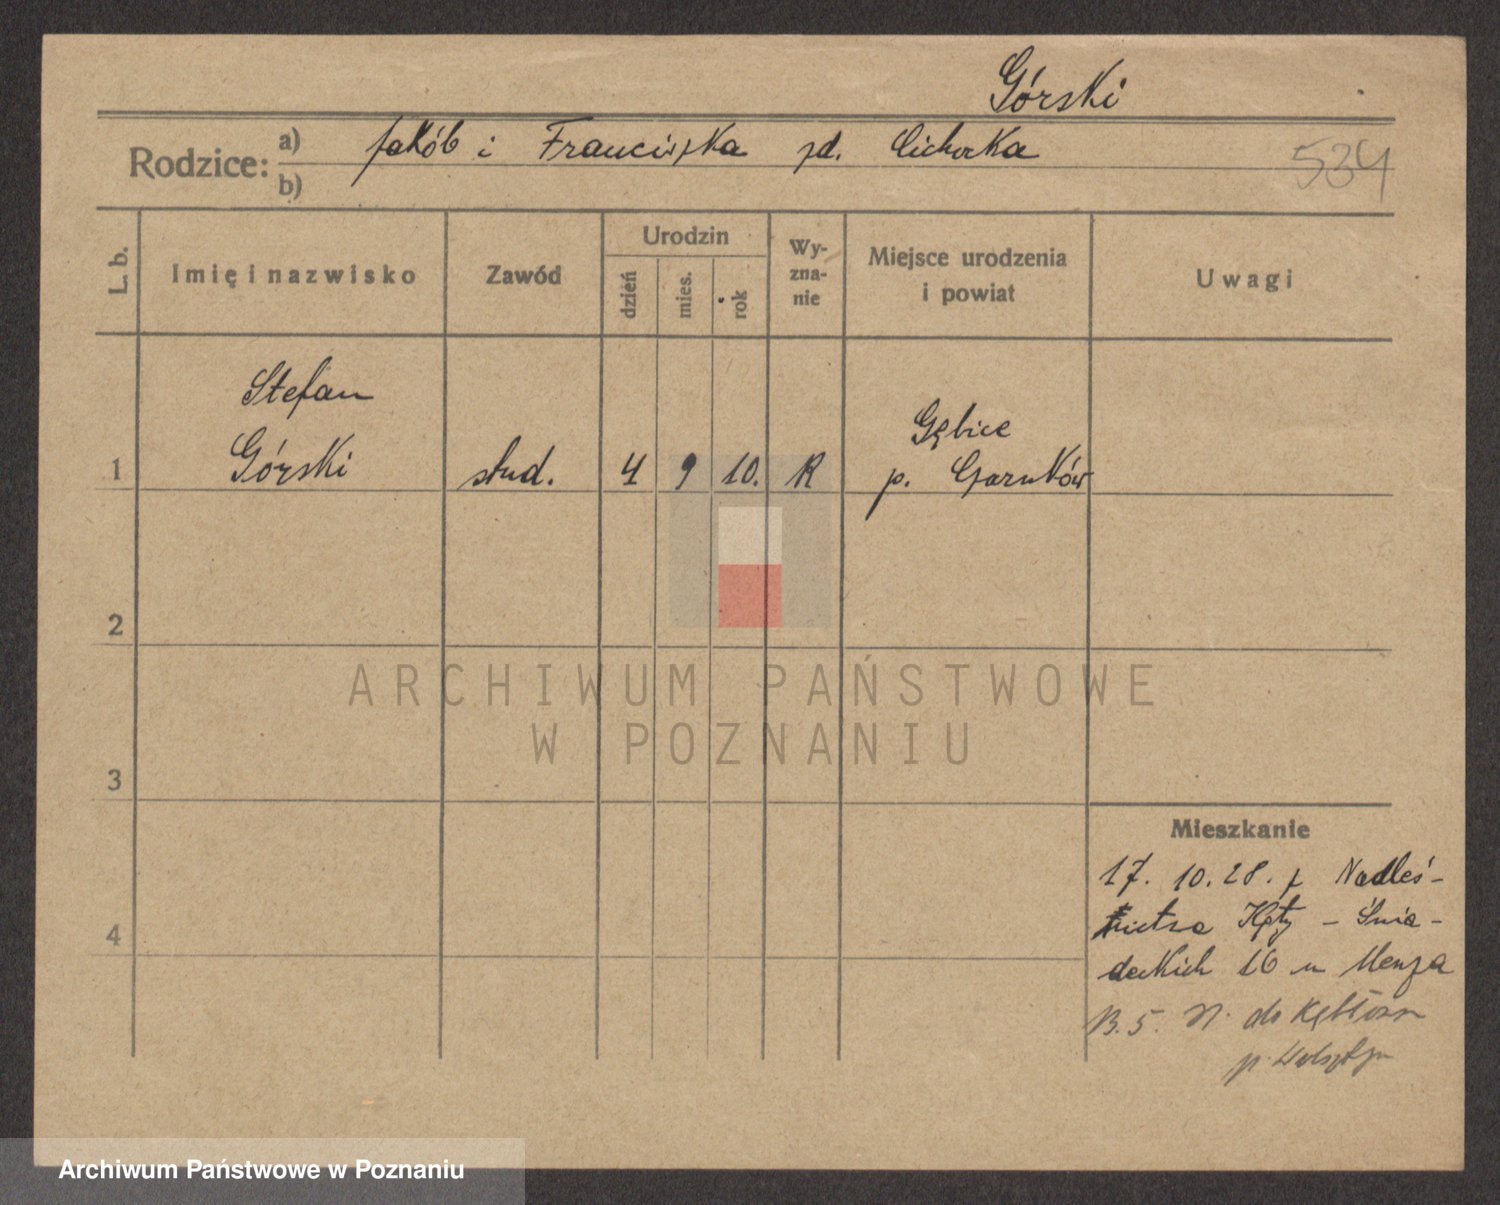 Górski
Rodzice: a) Jakób i Franciszka zd. Cichocka
b)
534
L. b. Imię i nazwisko Zawód Urodzin dzień mies. rok Wy-zna-nie Miejsce urodzenia i powiat Uwagi
Stefan
Górski
1 stud. 4 9 10. R
Gębice
p. Czarnków
2
3
4
Mieszkanie
17. 10. 28. z Nadleś-
nictwa Kąty - Śnia-
deckich 16 u Menza
B. 5. do
p. Wolsztyn
ARCHIWUM PAŃSTWOWE
W POZNANIU
Archiwum Państwowe w Poznaniu